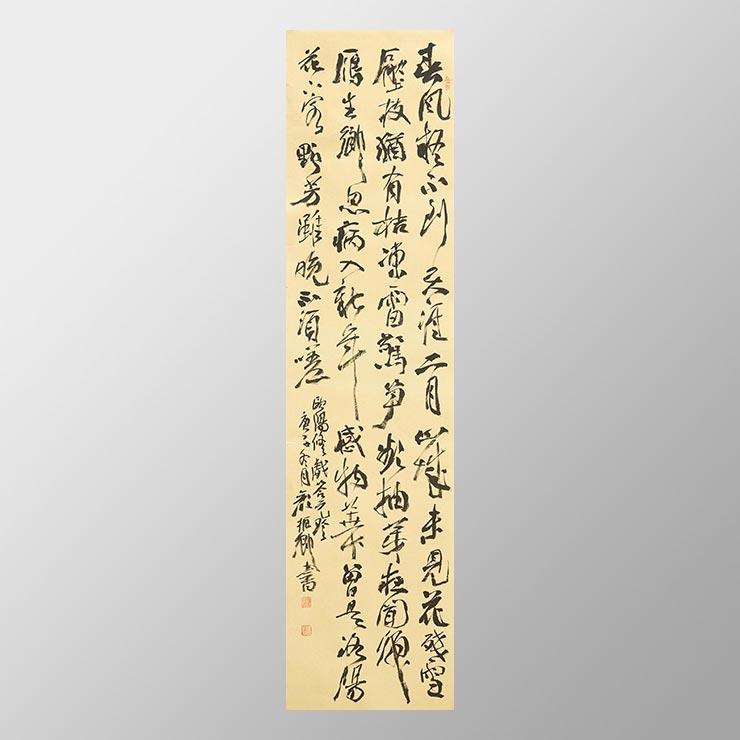 春風疑不到天涯二月山城未見花殘雪
壓枝猶有桔凍雷驚笋欲抽芽夜聞歸
鴈生鄉思病入新年感物華曾是洛陽
花下客野芳雖晚不須嗟
歐陽修戲答元珍
庚子冬月振卿書